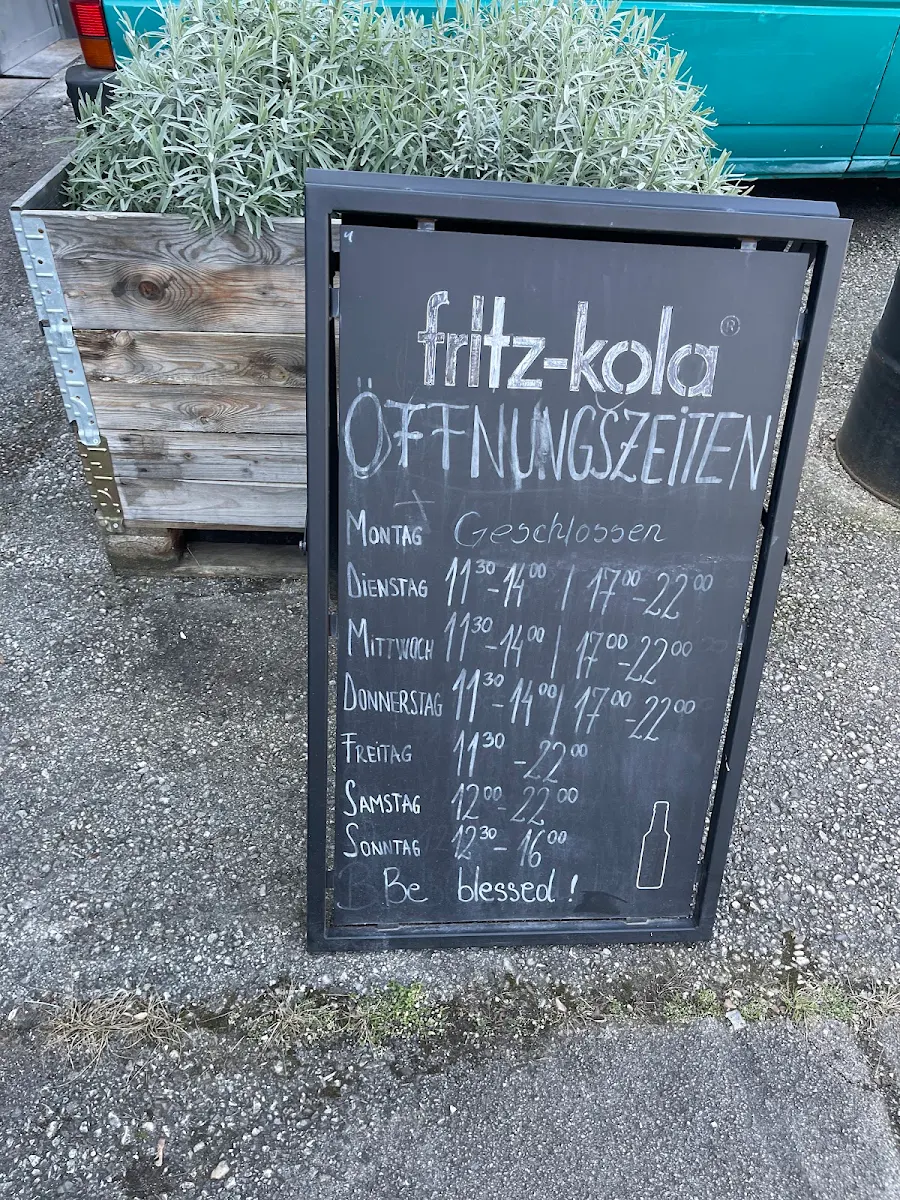 fritz-kola ®
ÖFFNUNGSZEITEN
MONTAG Geschlossen
DIENSTAG 11³⁰-14⁰⁰ | 17⁰⁰-22⁰⁰
MITTWOCH 11³⁰-14⁰⁰ | 17⁰⁰-22⁰⁰
DONNERSTAG 11³⁰-14⁰⁰ | 17⁰⁰-22⁰⁰
FREITAG 11³⁰-22⁰⁰
SAMSTAG 12⁰⁰-22⁰⁰
SONNTAG 12³⁰-16⁰⁰
Be blessed!